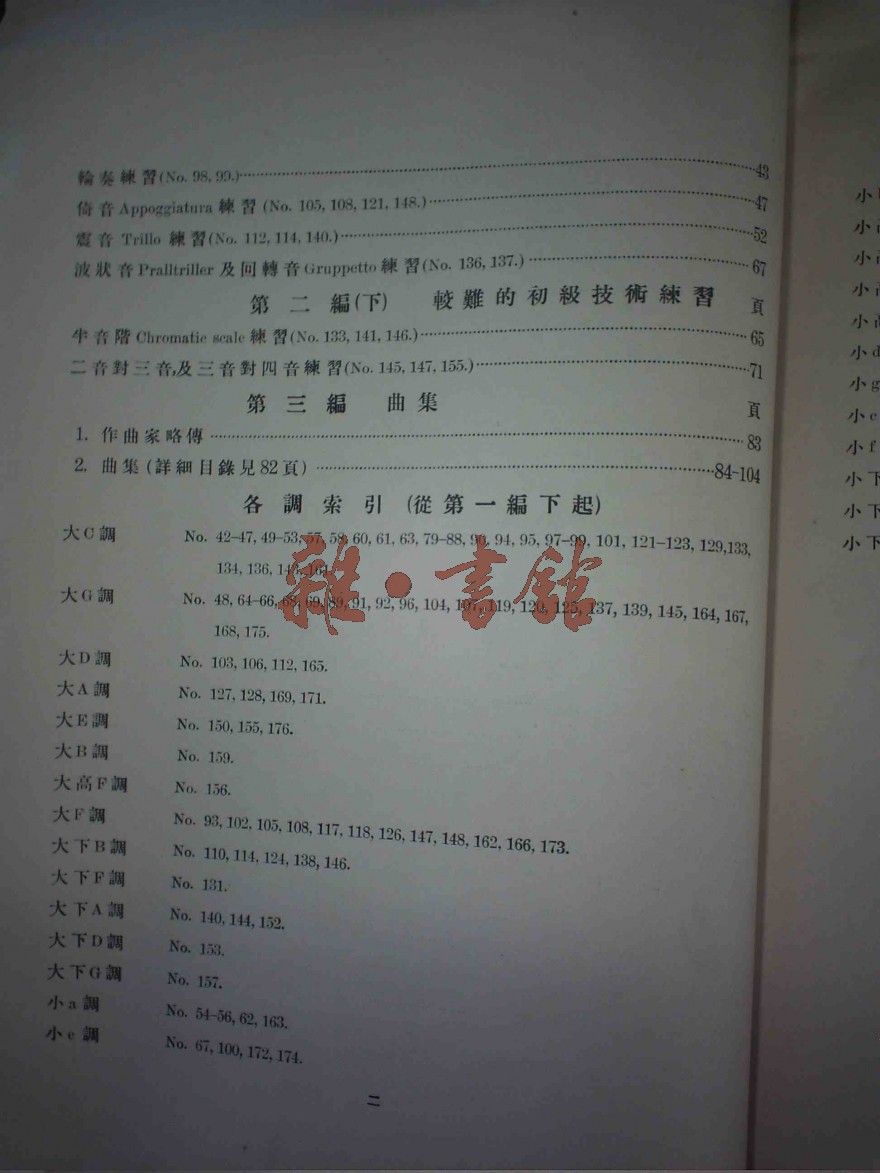 輪奏練習(No. 98, 99.)……43
倚音 Appoggiatura 練習 (No. 105, 108, 121, 148.)……47
震音 Trillo 練習(No. 112, 114, 140.)……52
波狀音 Pralltriller 及回轉音 Gruppetto 練習(No. 136, 137.)……67
第二編(下) 較難的初級技術練習 頁
半音階 Chromatic scale 練習(No. 133, 141, 146.)……65
二音對三音,及三音對四音練習(No. 145, 147, 155.)……71
第三編 曲集 頁
1. 作曲家略傳……83
2. 曲集(詳細目錄見82頁)……84-104
各調索引(從第一編下起)
大C調 No. 42-47, 49-53, 57, 58, 60, 61, 63, 79-88, 90, 94, 95, 97-99, 101, 121-123, 129,133,
134, 136, 161.
大G調 No. 48, 64-66, 68, 69, 89, 91, 92, 96, 104, 107, 119, 120, 125, 137, 139, 145, 164, 167,
168, 175.
大D調 No. 103, 106, 112, 165.
大A調 No. 127, 128, 169, 171.
大E調 No. 150, 155, 176.
大B調 No. 159.
大高F調 No. 156.
大F調 No. 93, 102, 105, 108, 117, 118, 126, 147, 148, 162, 166, 173.
大下B調 No. 110, 114, 124, 138, 146.
大下F調 No. 131.
大下A調 No. 140, 144, 152.
大下D調 No. 153.
大下G調 No. 157.
小a調 No. 54-56, 62, 163.
小e調 No. 67, 100, 172, 174.
二
小
小
小
小
小
小d
小g
小c
小f
小下
小下
小下
雜·書館